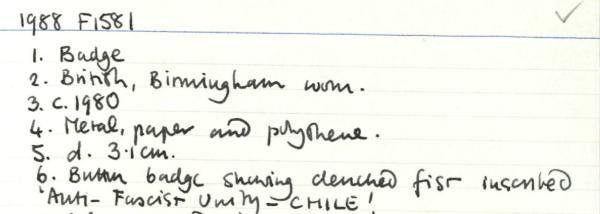 1988 F1581
1. Badge
2. British, Birmingham worn.
3. c.1980
4. Metal, paper and polythene.
5. d. 3.1cm.
6. Button badge showing clenched fist inscribed
'Anti-Fascist Unity - CHILE!